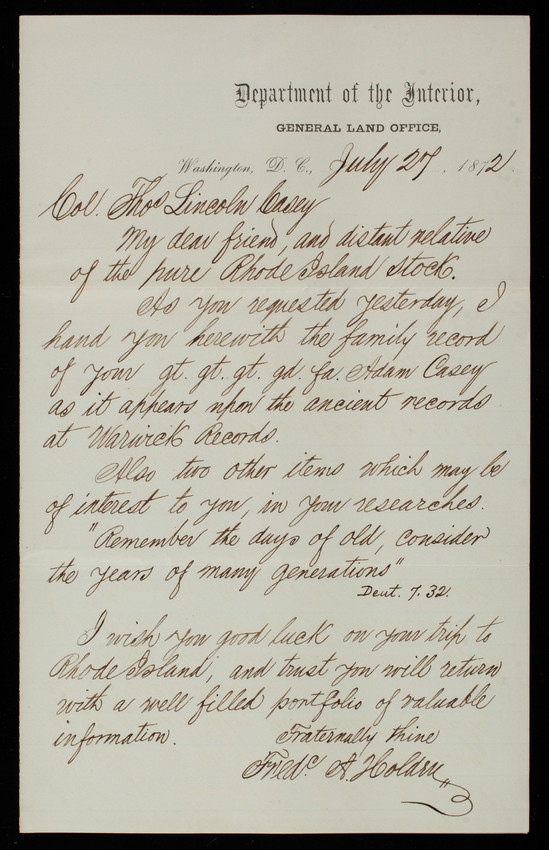 Department of the Interior,
GENERAL LAND OFFICE,
Washington, D. C., July 27, 1872.
Col. Thos Lincoln Casey
My dear friend, and distant relative
of the pure Rhode Island Stock.
As you requested yesterday, I
hand you herewith the family record
of your gt. gt. gt. gd. fa. Adam Casey
as it appears upon the ancient records
at Warwick Records.
Also two other items which may be
of interest to you, in your researches.
"Remember the days of old, consider
the years of many generations"
Deut. 7. 32.
I wish you good luck on your trip to
Rhode Island, and trust you will return
with a well filled portfolio of valuable
information.
Fraternally thine
Fredc. A. Holden